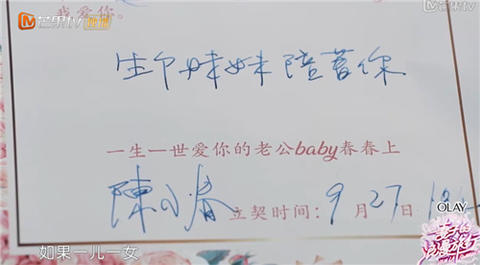 芒果tv
芒果tv
我爱你。
生个妹妹陪著你
一生一世爱你的老公baby春春上
陳小春 立契时间：9月27日
OLAY
如果一儿一女